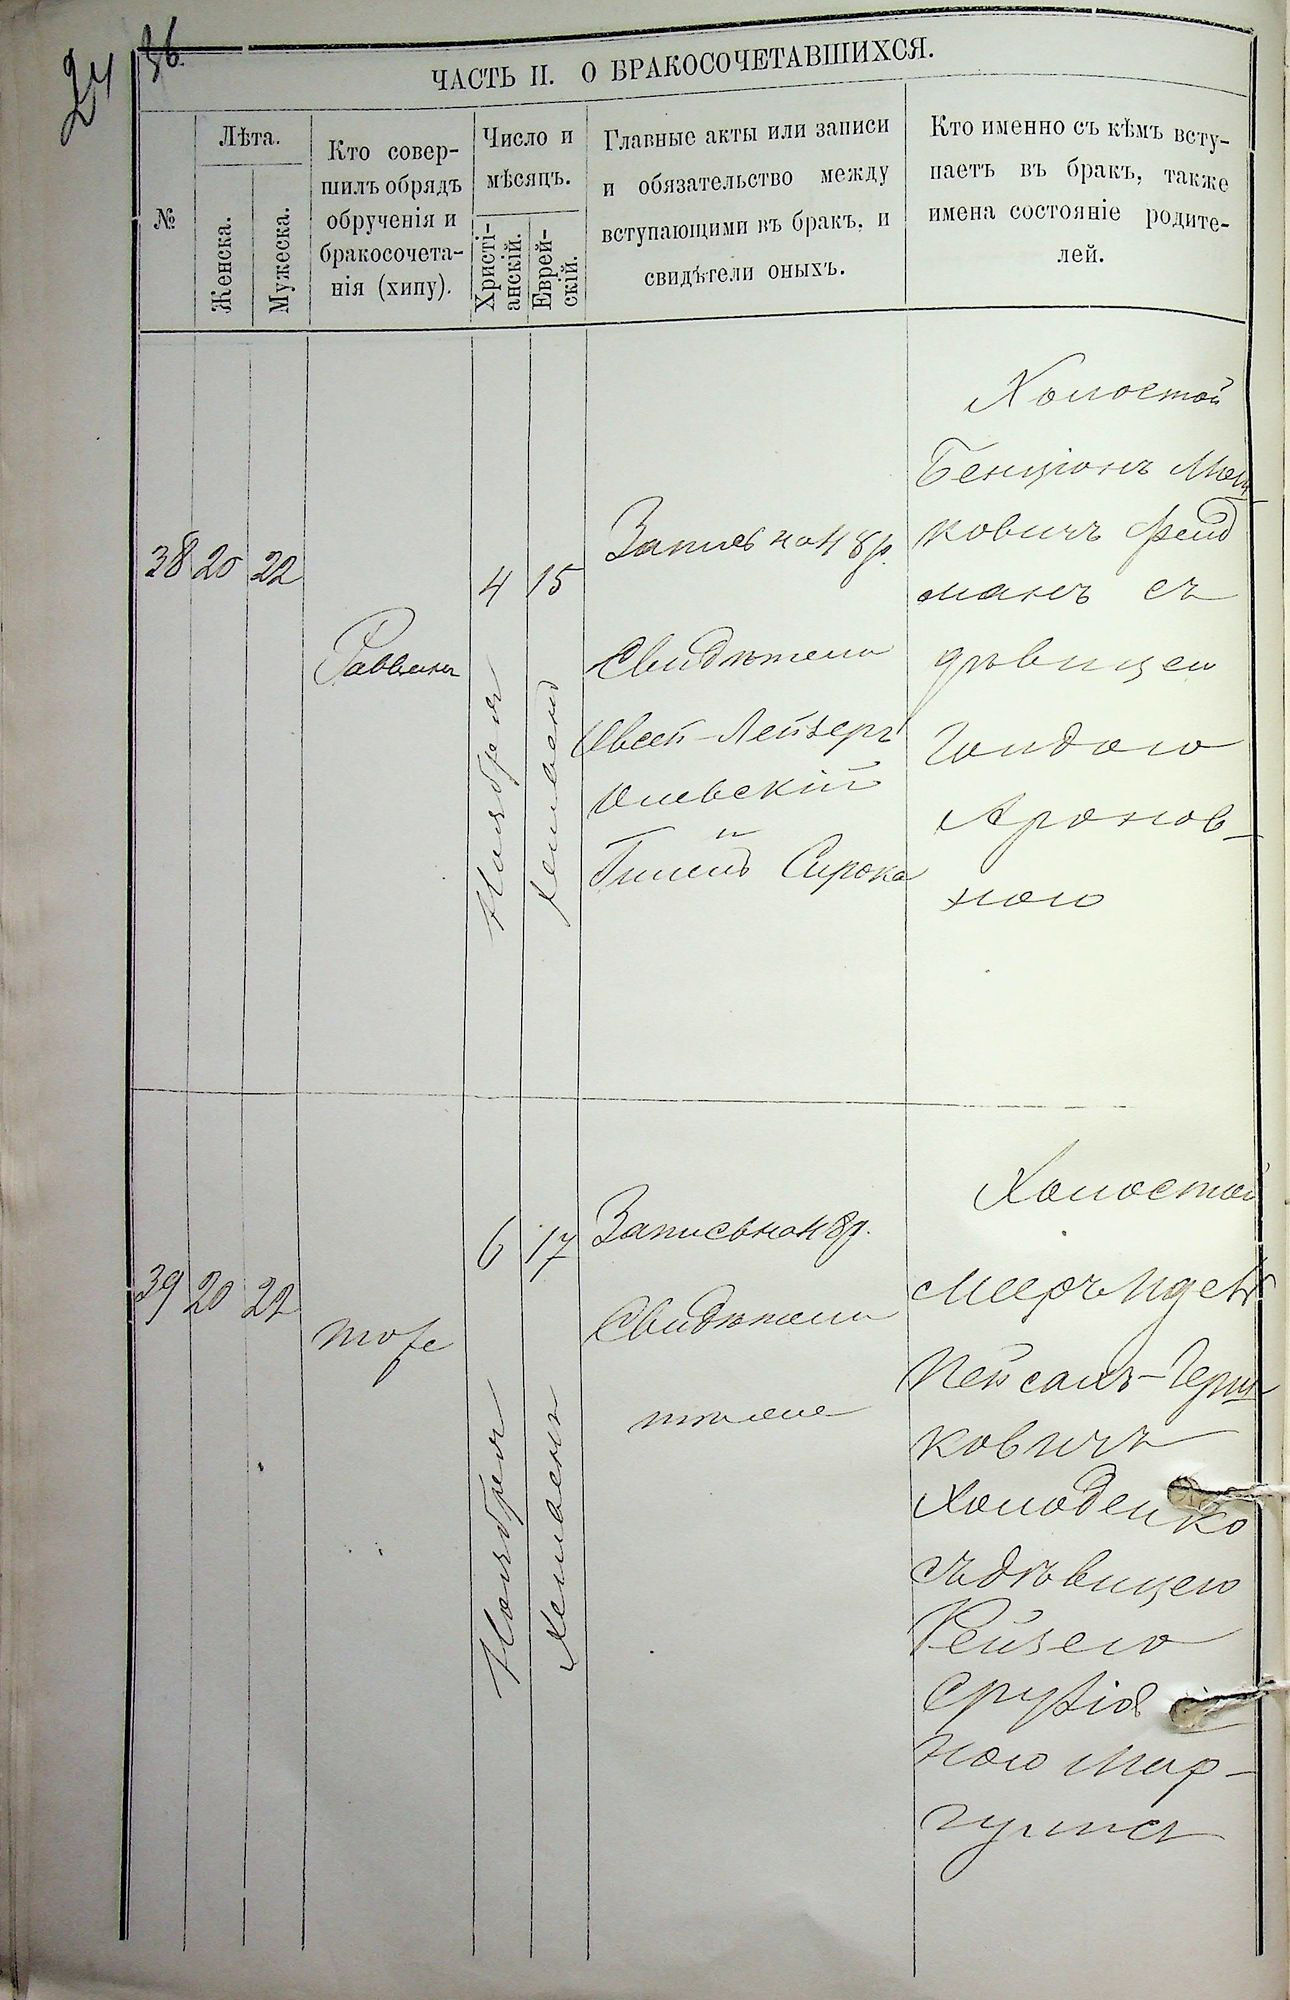 24 36
ЧАСТЬ II. О БРАКОСОЧЕТАВШИХСЯ.
№
Лѣта.
Женска.
Мужеска.
Кто совер-
шилъ обрядъ
обрученія и
бракосочета-
нія (хипу).
Число и
мѣсяцъ.
Христі-
анскій.
Еврей-
скій.
Главные акты или записи
и обязательство между
вступающими въ бракъ, и
свидѣтели оныхъ.
Кто именно съ кѣмъ всту-
паетъ въ бракъ, также
имена состояніе родите-
лей.
38 20 22
Раввинъ
4 15
Ноября
Запись на 48 р.
Свидѣтели
Овсей-Лейзеръ
Олевскій
и
Сирока
Холостой
Бенціонъ
ковичъ Фельд
манъ съ
дѣвицею
Голдою
Аронов-
ною
39 20 22
тоже
6 17
Ноября
Запись на 48 р.
Свидѣтели
тѣ же
Холостой
Мееръ
Пейсахъ-Герш-
ковичъ
Холоденко
съ дѣвицею
Рейзею
Срулiов
ною Мар-
гулисъ